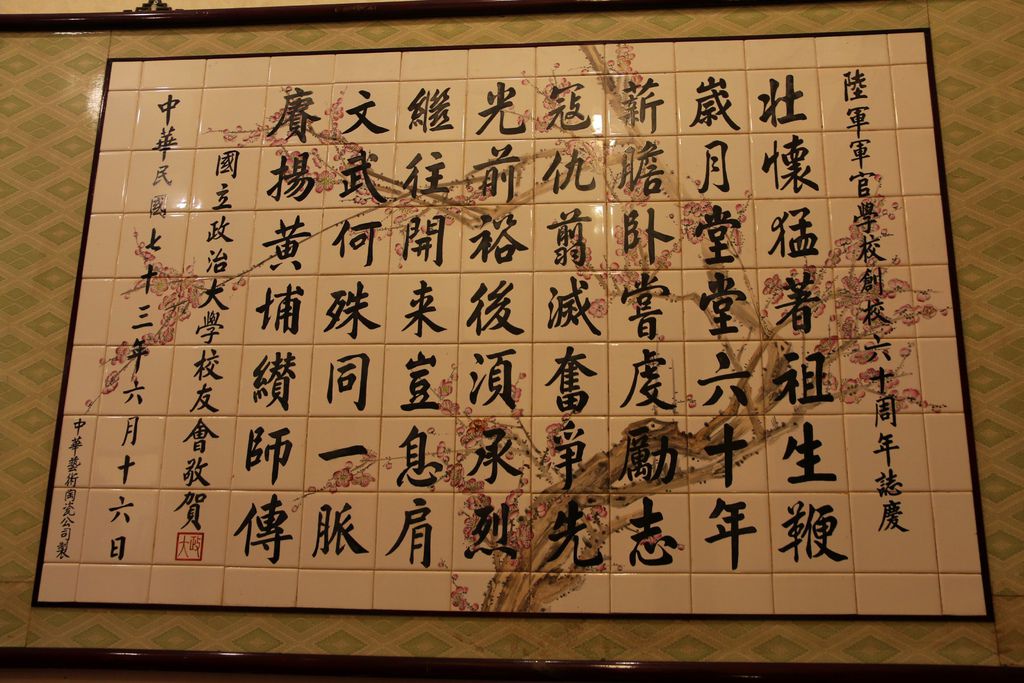 陸軍軍官學校創校六十周年誌慶
壯懷猛著祖生鞭
歲月堂堂六十年
薪膽臥嘗虔勵志
寇仇翦滅奮爭先
光前裕後須承烈
繼往開来豈息肩
文武何殊同一脈
賡揚黃埔纘師傳
國立政治大學校友會敬賀
政大
中華民國七十三年六月十六日
中華藝術陶瓷公司製